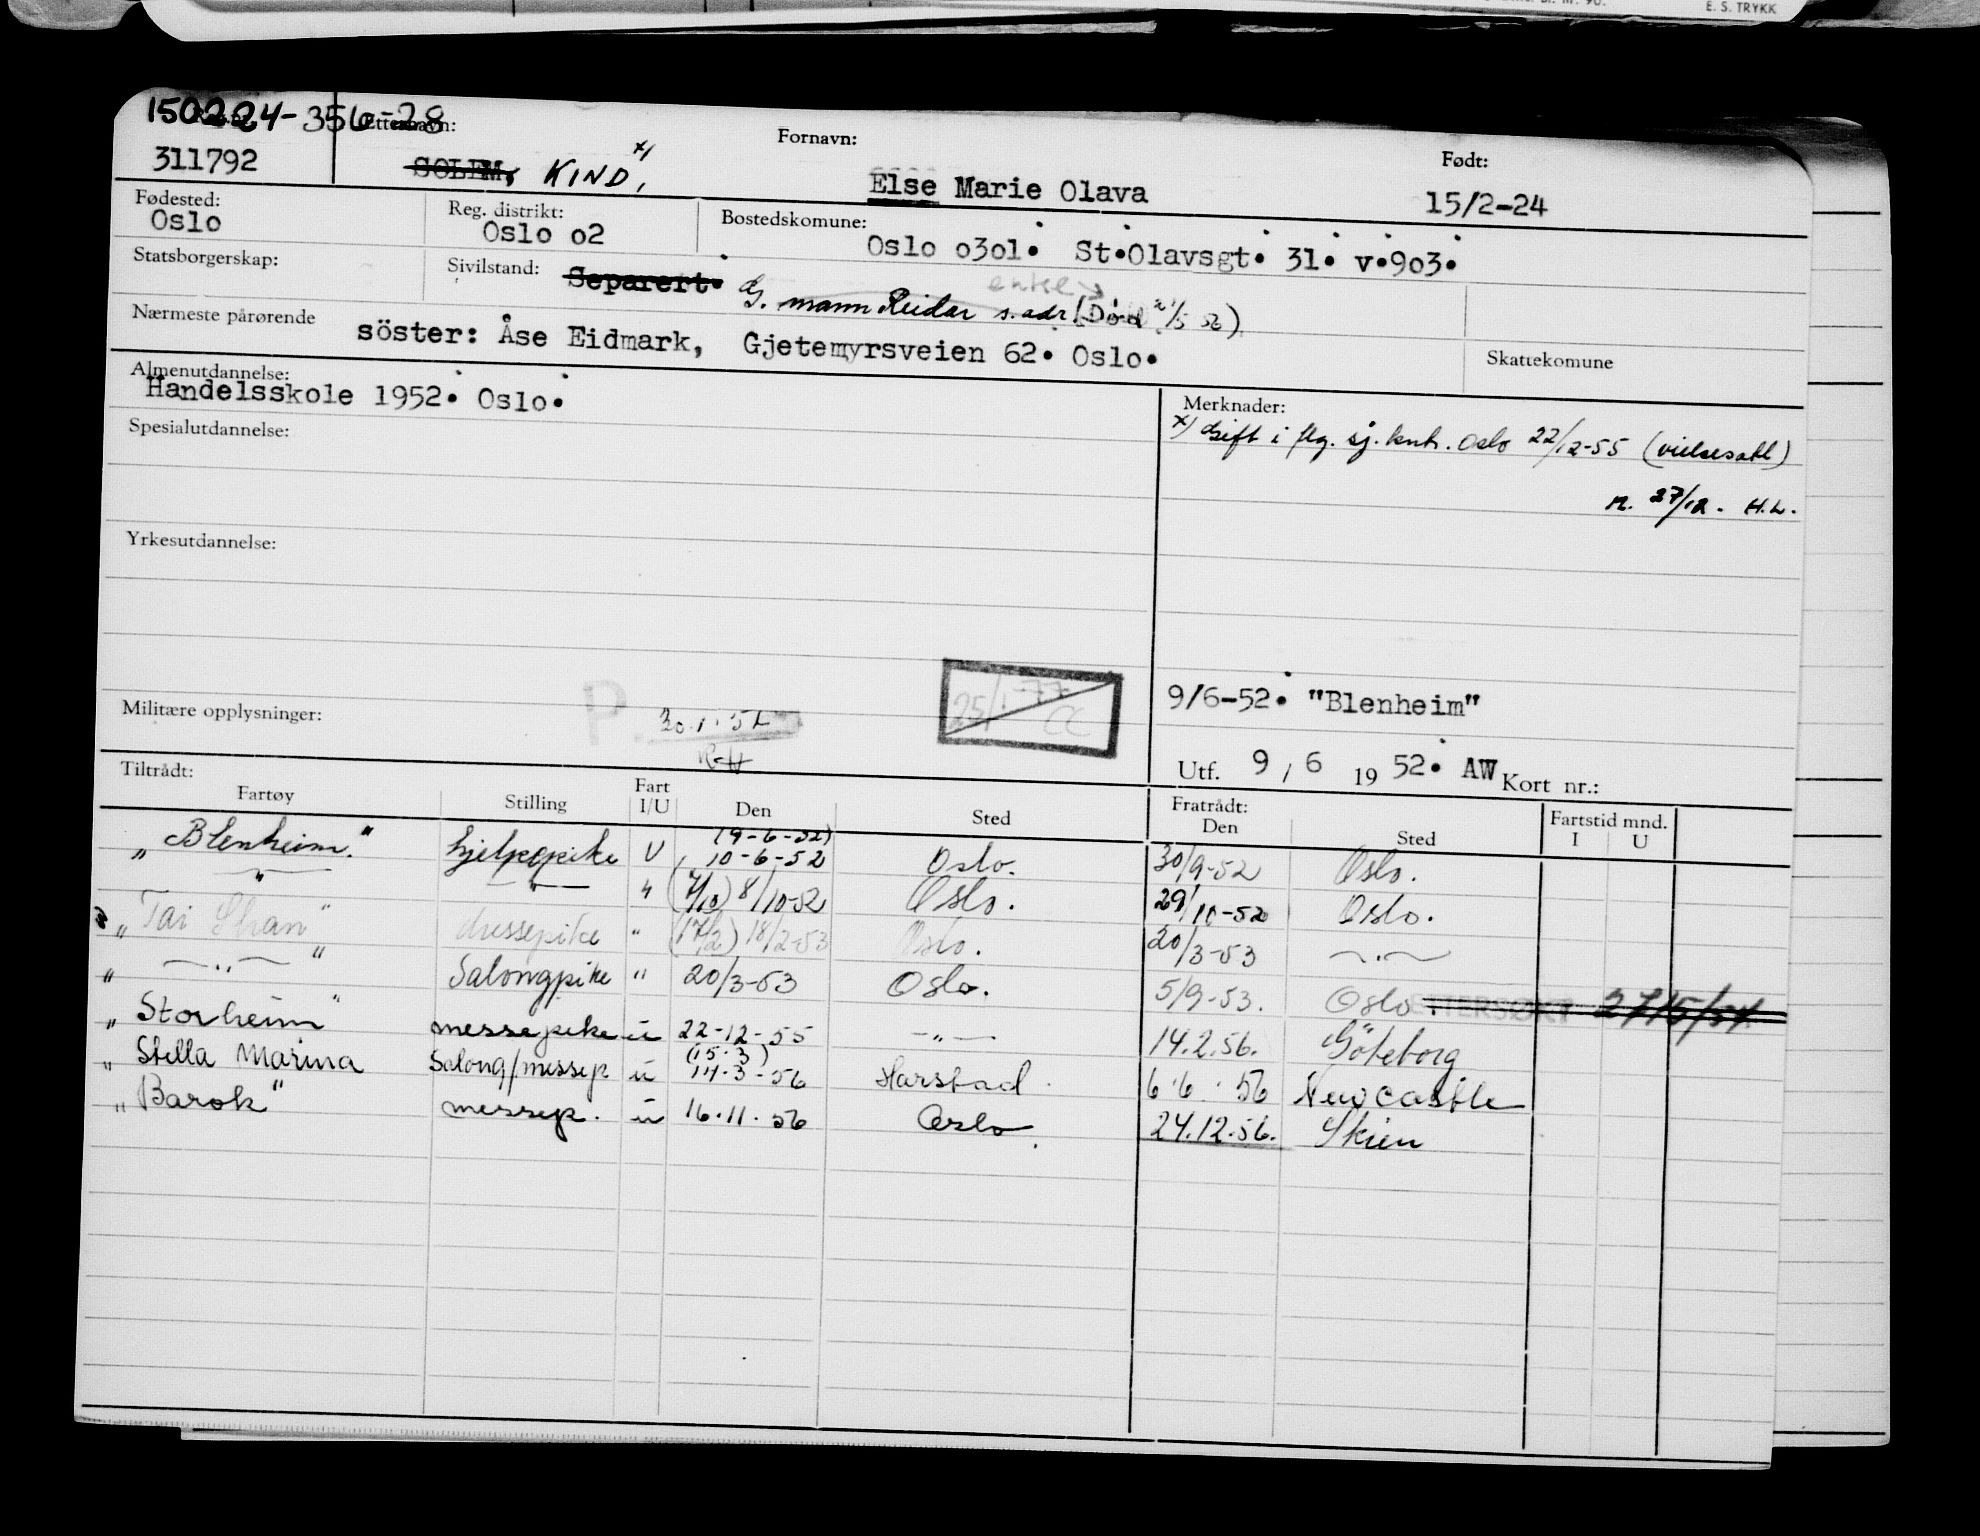 E. S. TRYKK
150224-356-28
Etternavn: Fornavn: Født:
311792 SOLEM, KIND, x/ Else Marie Olava 15/2-24
Fødested: Reg. distrikt: Bostedskomune:
Oslo Oslo o2 Oslo o3o1. St.Olavsgt. 31. v.9o3.
Statsborgerskap: Sivilstand: Separert. G. mann Reidar s. adr. (Död 2/5 52)
enke
Nærmeste pårørende söster: Åse Eidmark, Gjetemyrsveien 62. Oslo.
Skattekomune
Almenutdannelse:
Handelsskole 1952. Oslo.
Merknader:
x/ Gift i flg. sj. kntr. Oslo 22/12-55 (vielsesatt)
n. 27/12. H.L.
Spesialutdannelse:
Yrkesutdannelse:
P. 25/1-77 CC
9/6-52. "Blenheim"
Militære opplysninger: 30.1.52
Utf. 9 / 6 19 52. AW Kort nr.:
Tiltrådt: Fratrådt: Fartstid mnd.
Fartøy Stilling Fart I/U Den Sted Den Sted I U
„Blenheim." hjelpepike U (9-6-52) 10-6-52 Oslo. 30/9-52 Oslo.
— " — — " — " (7/10) 8/10-52 Oslo. 29/10-52 Oslo.
„Tai Shan" dessepike " (17/2) 18/2-53 Oslo. 20/3-53 — " —
„ — " — " Salongpike " 20/3-53 Oslo. 5/9-53. Oslo. ETTERSØKT 27/5/54
„Storheim" messepike u 22-12-55 — " — 14.2.56. Göteborg
„Stella Marina Salong/messep u (15.3) 14-3-56 Harstad 6.6.56 Newcastle
„Barok" messep. u 16.11.56 Oslo 24.12.56. Skien